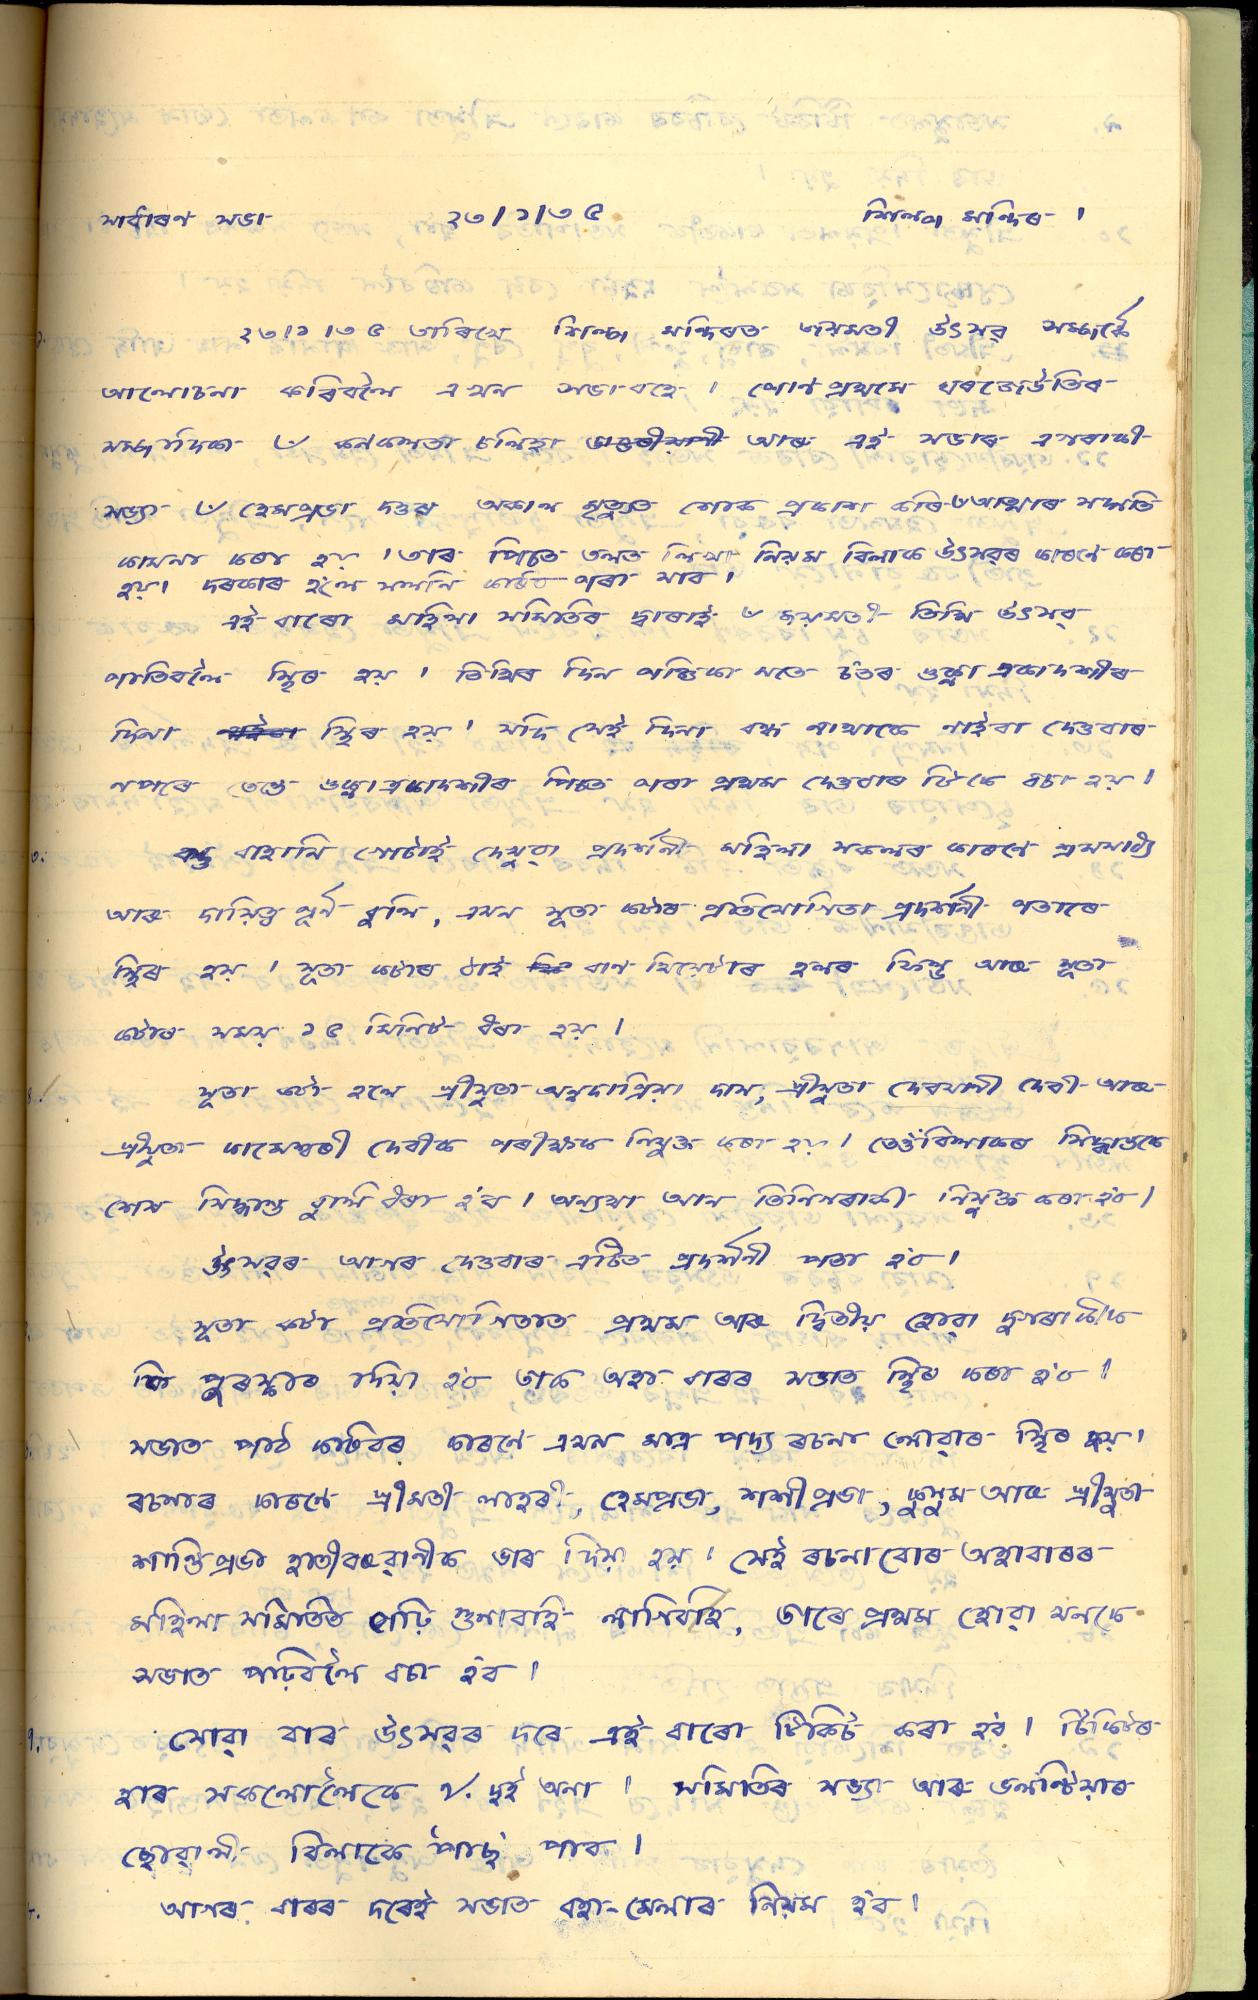 সাধাৰণ সভা ২৩/১/৩৫ শিল্প মন্দিৰ ।
২৩।১।৩৫ তাৰিখে শিল্প মন্দিৰত জয়মতী উৎসৱ সম্পৰ্কে
আলোচনা কৰিবলৈ এখন সভা বহে । পোণ প্ৰথমে ঘৰজেউতিৰ
সম্পাদিকা ৺ কনকলতা চলিহা আৰু এই সভাৰ এগৰাকী
সভ্যা ৺ হেমপ্ৰভা দত্তৰ অকাল মৃত্যুত শোক প্ৰকাশ কৰি ৺আত্মাৰ সদ্গতি
কামনা কৰা হয় । তাৰ পিচত তলত লিখা নিয়ম বিলাক উৎসৱৰ কাৰণে কৰা
হয়। দৰকাৰ হ'লে সলনি কৰিব পৰা যাব ।
এই বাৰো মহিলা সমিতিৰ দ্বাৰাই ৺ জয়মতী তিথি উৎসৱ
পাতিবলৈ স্থিৰ হয় । তিথিৰ দিন পঞ্জিকা মতে চ'তৰ শুক্লা একাদশীৰ
দিনা স্থিৰ হয় । যদি সেই দিনা বন্ধ নাথাকে নাইবা দেওবাৰ
নপৰে তেন্তে শুক্লা একাদশীৰ পিচত পৰা প্ৰথম দেওবাৰ টিকে ৰখা হয় ।
৩. বস্তু বাহানি গোটাই দেখুৱা প্ৰদৰ্শনী মহিলা সকলৰ কাৰণে শ্ৰমসাধ্য
আৰু দায়িত্ব পূৰ্ণ বুলি, এখন সূতা কটাৰ প্ৰতিযোগিতা প্ৰদৰ্শনী পতাৰে
স্থিৰ হয় । সূতা কটাৰ ঠাই বাণ থিয়েটাৰ হলৰ ফিল্ড আৰু সূতা
কটাৰ সময় ১৫ মিনিট ধৰা হয় ।
৪. সূতা কটা হলে শ্ৰীযুতা অন্নদাপ্ৰিয়া দাস, শ্ৰীযুতা দেৱযানী দেৱী আৰু
শ্ৰীযুতা কামেশ্বৰী দেৱীক পৰীক্ষক নিযুক্ত কৰা হয় । তেওঁবিলাকৰ সিদ্ধান্তকে
শেষ সিদ্ধান্ত বুলি ধৰা হ'ব । অন্যথা আন তিনিগৰাকী নিযুক্ত কৰা হ'ব ।
উৎসৱৰ আগৰ দেওবাৰ এটিত প্ৰদৰ্শনী পতা হ'ব ।
সূতা কটা প্ৰতিযোগিতাত প্ৰথম আৰু দ্বিতীয় হোৱা দুগৰাকীক
কি পুৰস্কাৰ দিয়া হ'ব তাক অহা বাৰৰ সভাত স্থিৰ কৰা হ'ব ।
সভাত পাঠ কৰিবৰ কাৰণে এখন মাত্ৰ পদ্য ৰচনা লোৱাৰ স্থিৰ হয় ।
ৰচনাৰ কাৰণে শ্ৰীমতী লাহৰী, হেমপ্ৰভা, শশীপ্ৰভা, কুসুম আৰু শ্ৰীযুতা
শান্তিপ্ৰভা হাতীবৰুৱানীক ভাৰ দিয়া হয় । সেই ৰচনাবোৰ অহাবাৰৰ
মহিলা সমিতিত পঢ়ি শুনাবহি লাগিবহি, তাৰে প্ৰথম হোৱা খনকে
সভাত পঢ়িবলৈ ৰখা হ'ব ।
৭. যোৱা বাৰ উৎসৱৰ দৰে এই বাৰো টিকিট কৰা হ'ব । টিকিটৰ
হাৰ সকলোলৈকে ৵. দুই অনা । সমিতিৰ সভ্যা আৰু ভলণ্টিয়াৰ
ছোৱালী বিলাকে পাছ্ পাব ।
৮. আগৰ বাৰৰ দৰেই সভাত বহা-মেলাৰ নিয়ম হ'ব ।